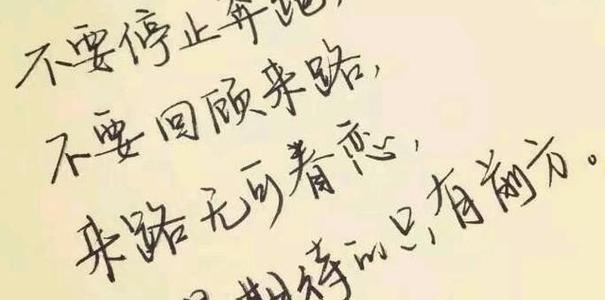 不要停止奔跑，
不要回顾来路，
来路无可眷恋，
期待的只有前方。